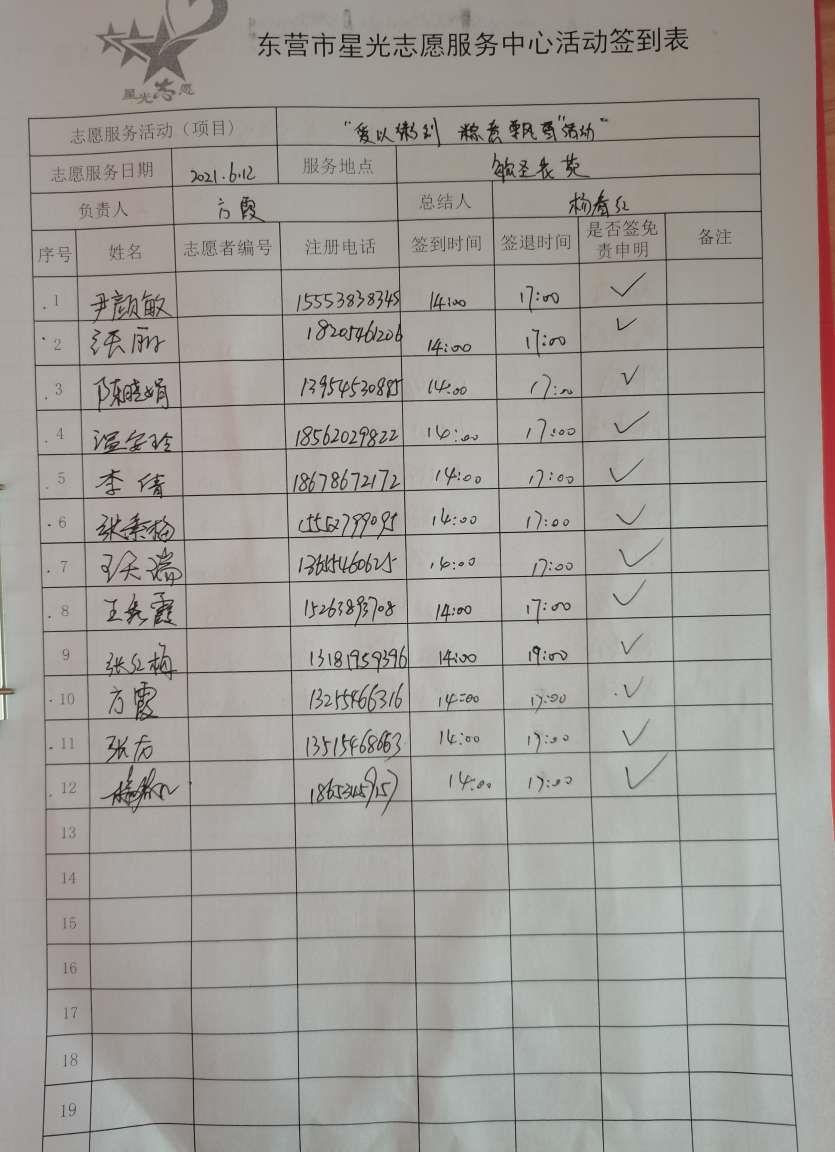 星光志愿
东营市星光志愿服务中心活动签到表
志愿服务活动（项目） "爱以粽到 粽香飘香"活动"
志愿服务日期 2021.6.12 服务地点
负责人 方霞 总结人 杨春红
序号 姓名 志愿者编号 注册电话 签到时间 签退时间 是否签免责申明 备注
1 尹颜敏 15553838345 14:00 17:00 ✓
2 张丽 18205461206 14:00 17:00 ✓
3 陈晓娟 13954530885 14:00 17:00 ✓
4 温安玲 18562029822 14:00 17:00 ✓
5 李倩 18678672172 14:00 17:00 ✓
6 张秉梅 15552799095 14:00 17:00 ✓
7 王天瑞 14:00 17:00 ✓
8 霞 15263893708 14:00 17:00 ✓
9 张红梅 13181959396 14:00 19:00 ✓
10 方霞 13255466316 14:00 17:00 ✓
11 张 13515468663 14:00 17:00 ✓
12 14:00 17:00 ✓
13
14
15
16
17
18
19